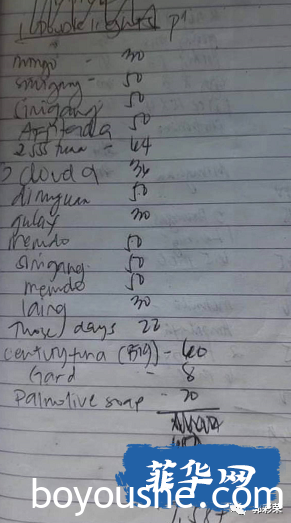 P1
mongo - 30
sinigang - 50
sinigang 50
Afritada 50
2 555 tuna - 44
2 cloud 9 36
dinuguan 50
gulay 30
menudo 50
sinigang 50
menudo 50
laing 30
Those days 22
century tuna (Big) - 40
Gard - 8
Palmolive soap - 20
菲华网
boyoushe.com